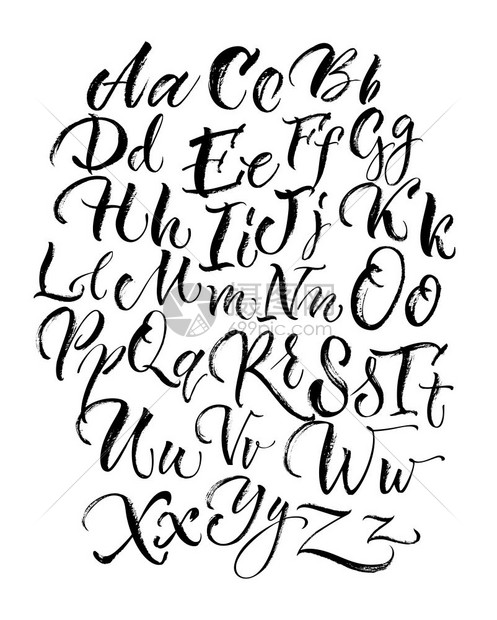 Aa Cc Bb
Dd Ee Ff Gg
Hh Ii Jj Kk
Ll Mm Nn Oo
Pp Qq Rr Ss Tt
Uu Vv Ww
Xx Yy Zz
摄图网
699pic.com